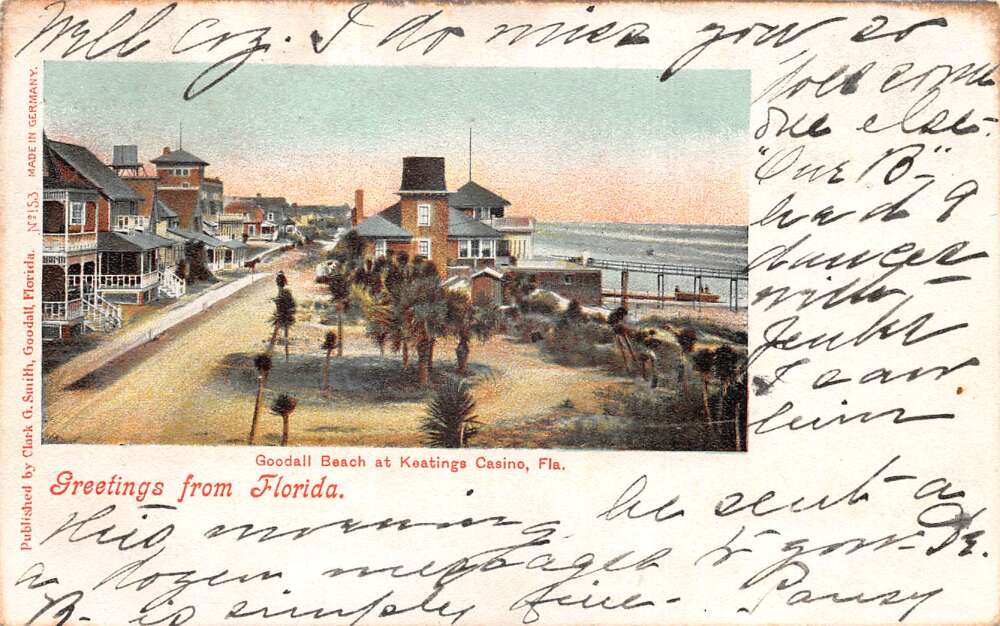 Well Coz. I do miss you so
MADE IN GERMANY.
Nº 153
Published by Clark G. Smith, Goodall, Florida.
some
one else.
"Our B"
had 9
dances
with
I can
Goodall Beach at Keatings Casino, Fla.
Greetings from Florida.
This morning he sent a
a dozen messages to your Dr.
B. is simply fine. Pansy